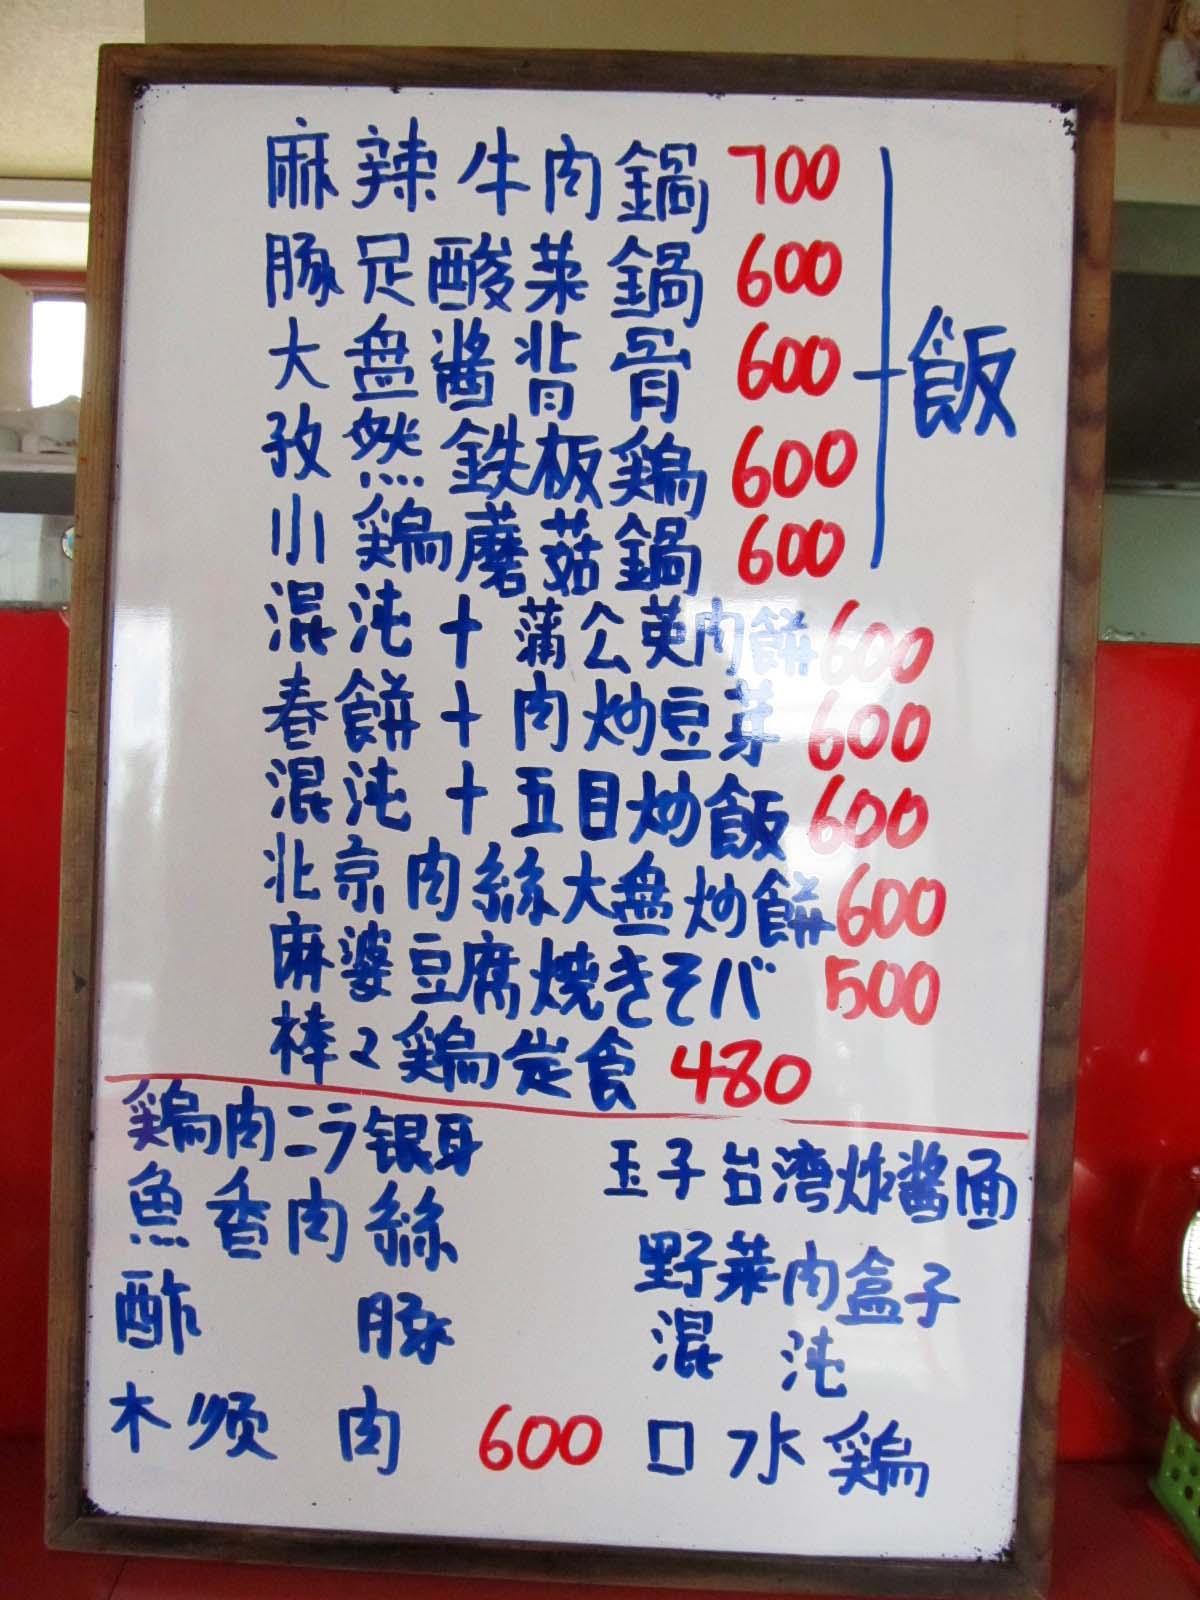 麻辣牛肉鍋 700
豚足酸菜鍋 600
大盘酱背骨 600
孜然鉄板鶏 600
小鶏蘑菇鍋 600
飯
混沌+蒲公英肉餅 600
春餅+肉炒豆芽 600
混沌+五目炒飯 600
北京肉絲大盘炒餅 600
麻婆豆腐焼きそバ 500
棒々鶏定食 480
鶏肉ニラ银芽
魚香肉絲
酢豚
木须肉 600
玉子台湾炸酱面
野菜肉盒子
混沌
口水鶏